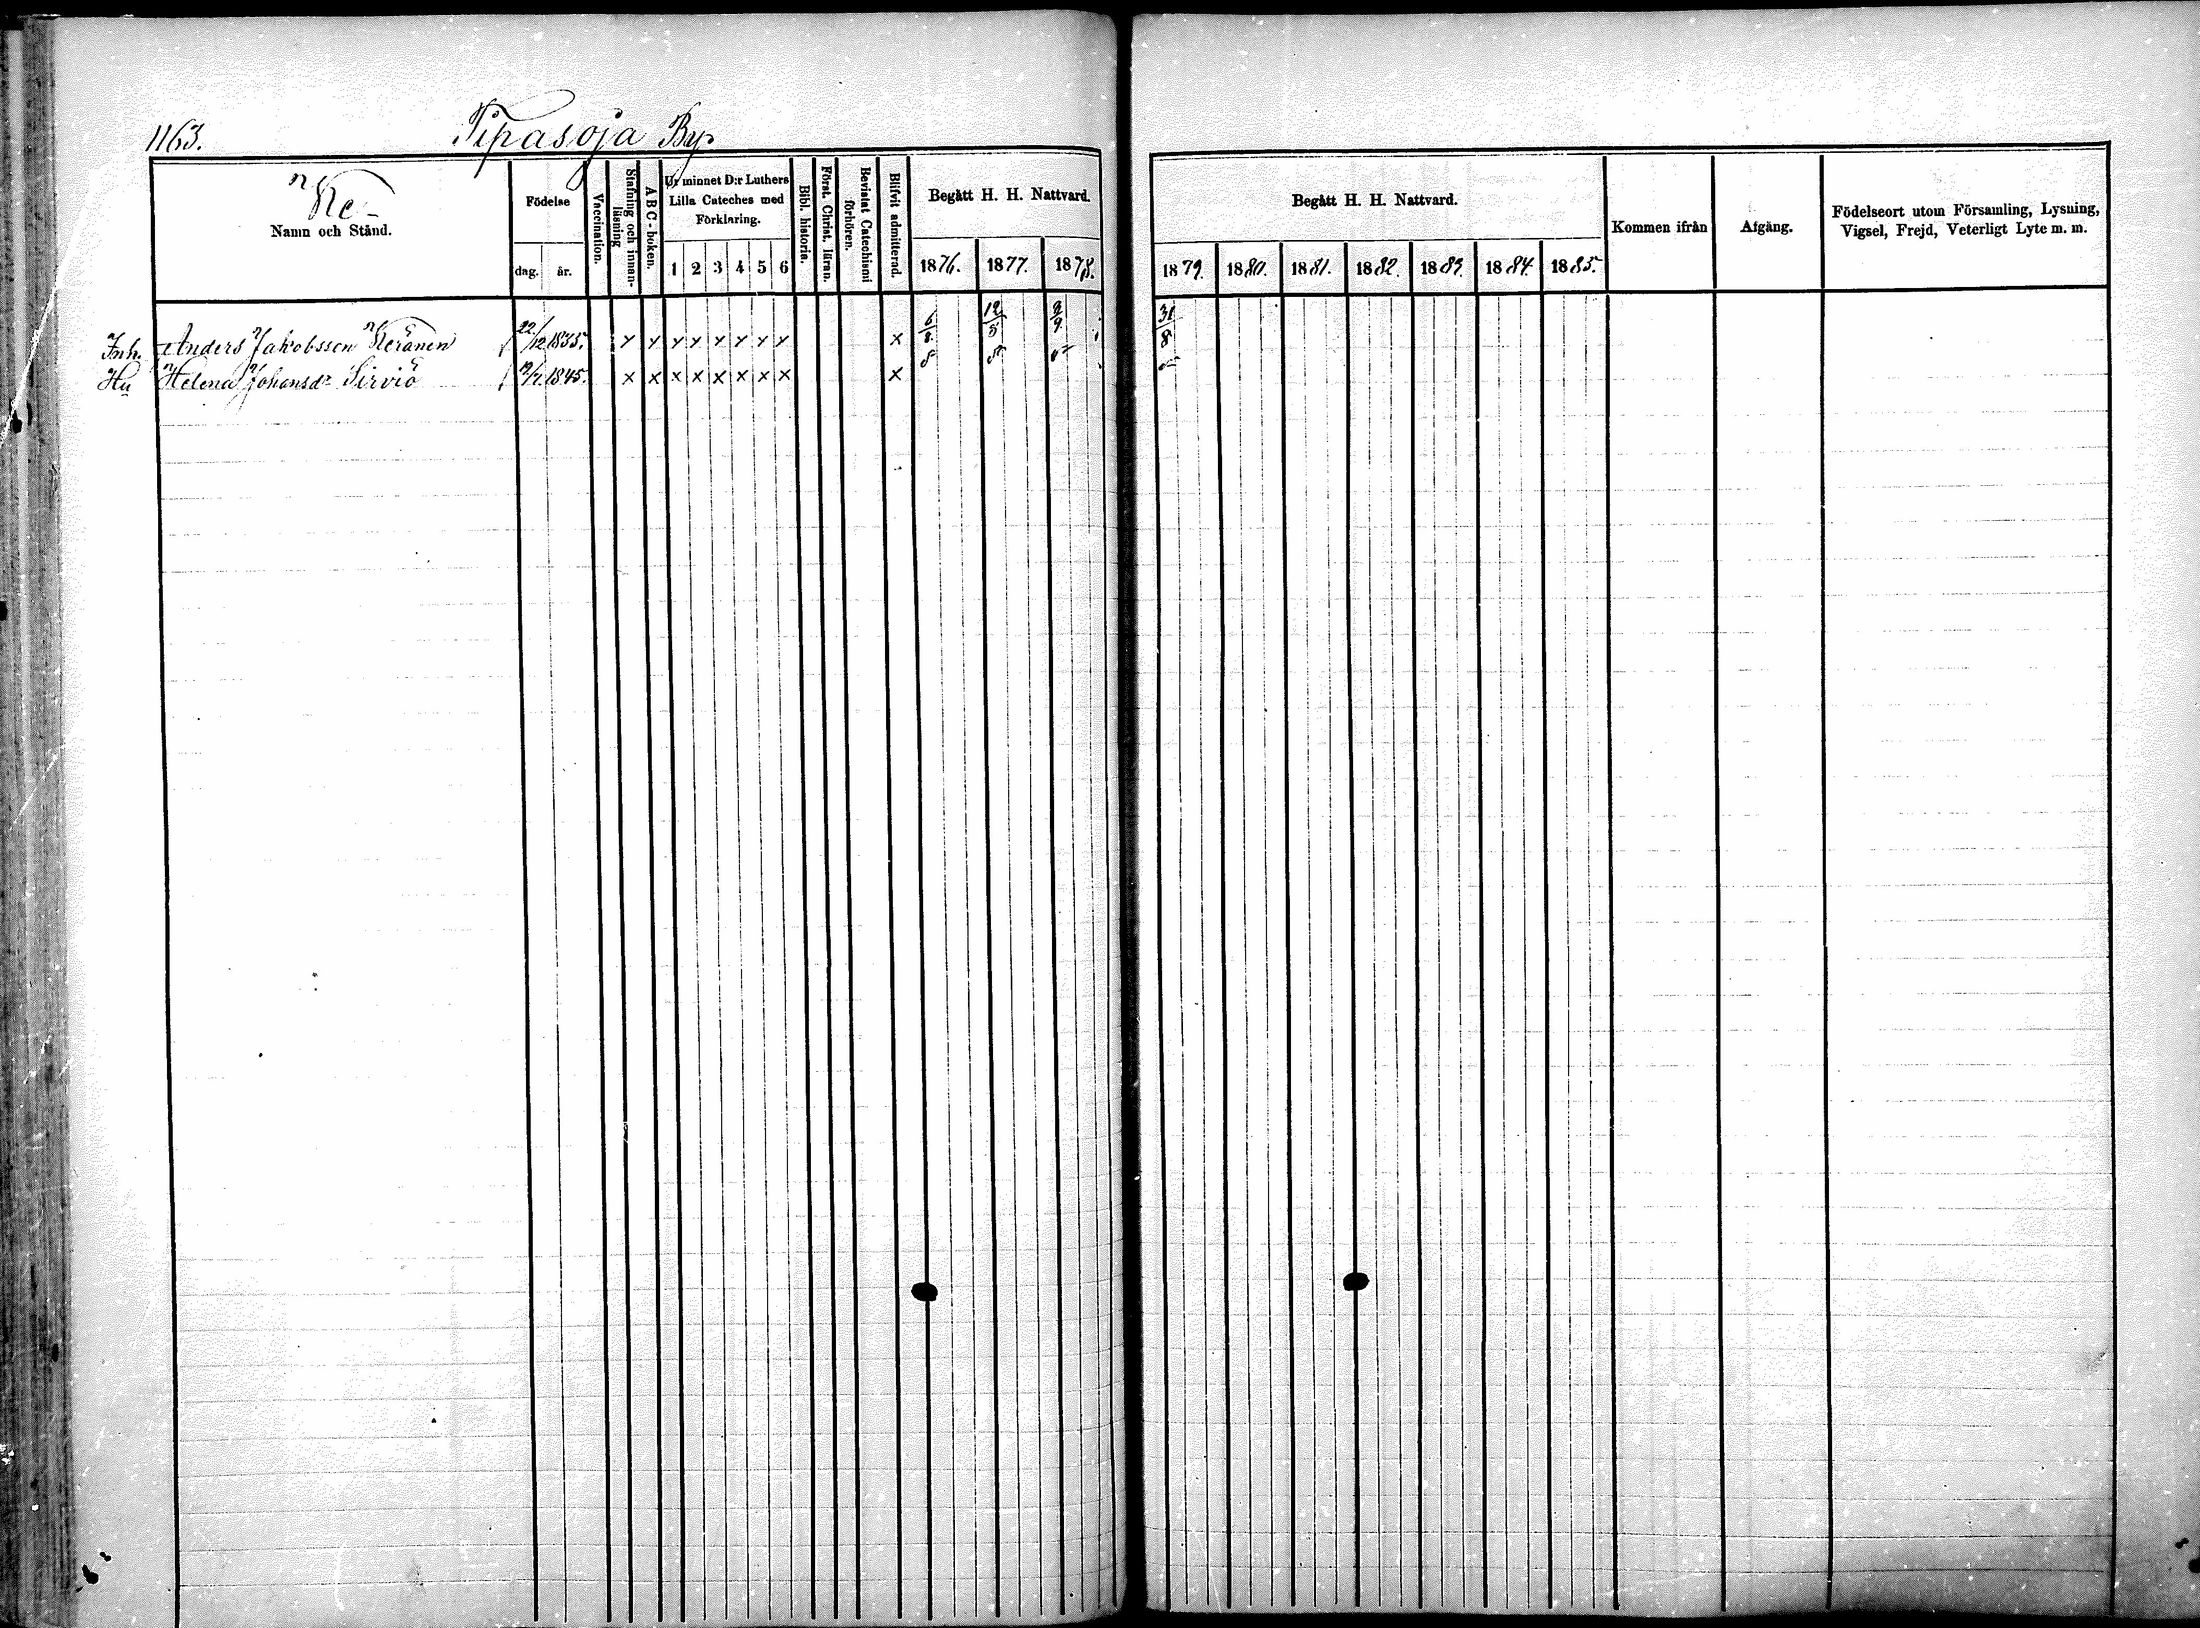 1163. Tipasoja By.
Ke-
Namn och Stånd.
Födelse
dag. år.
Vaccination.
Stafning och innan-läsning
A B C - boken.
Ur minnet D:r Luthers Lilla Cateches med Förklaring.
1 2 3 4 5 6
Bibl. historia.
Först. Christ. läran.
Bevistat Catechismi förhören.
Blifvit admitterad.
Begått H. H. Nattvard.
1876. 1877. 1878.
Begått H. H. Nattvard.
1879. 1880. 1881. 1882. 1883. 1884. 1885.
Kommen ifrån
Afgång.
Födelseort utom Församling, Lysning, Vigsel, Frejd, Veterligt Lyte m. m.
Inh. Anders Jakobsson Keränen 22/12 1835. x x x x x x x x x 12/5 9/9 31/8
Hu Helena Johansdr Sirviö 1845. x x x x x x x x x